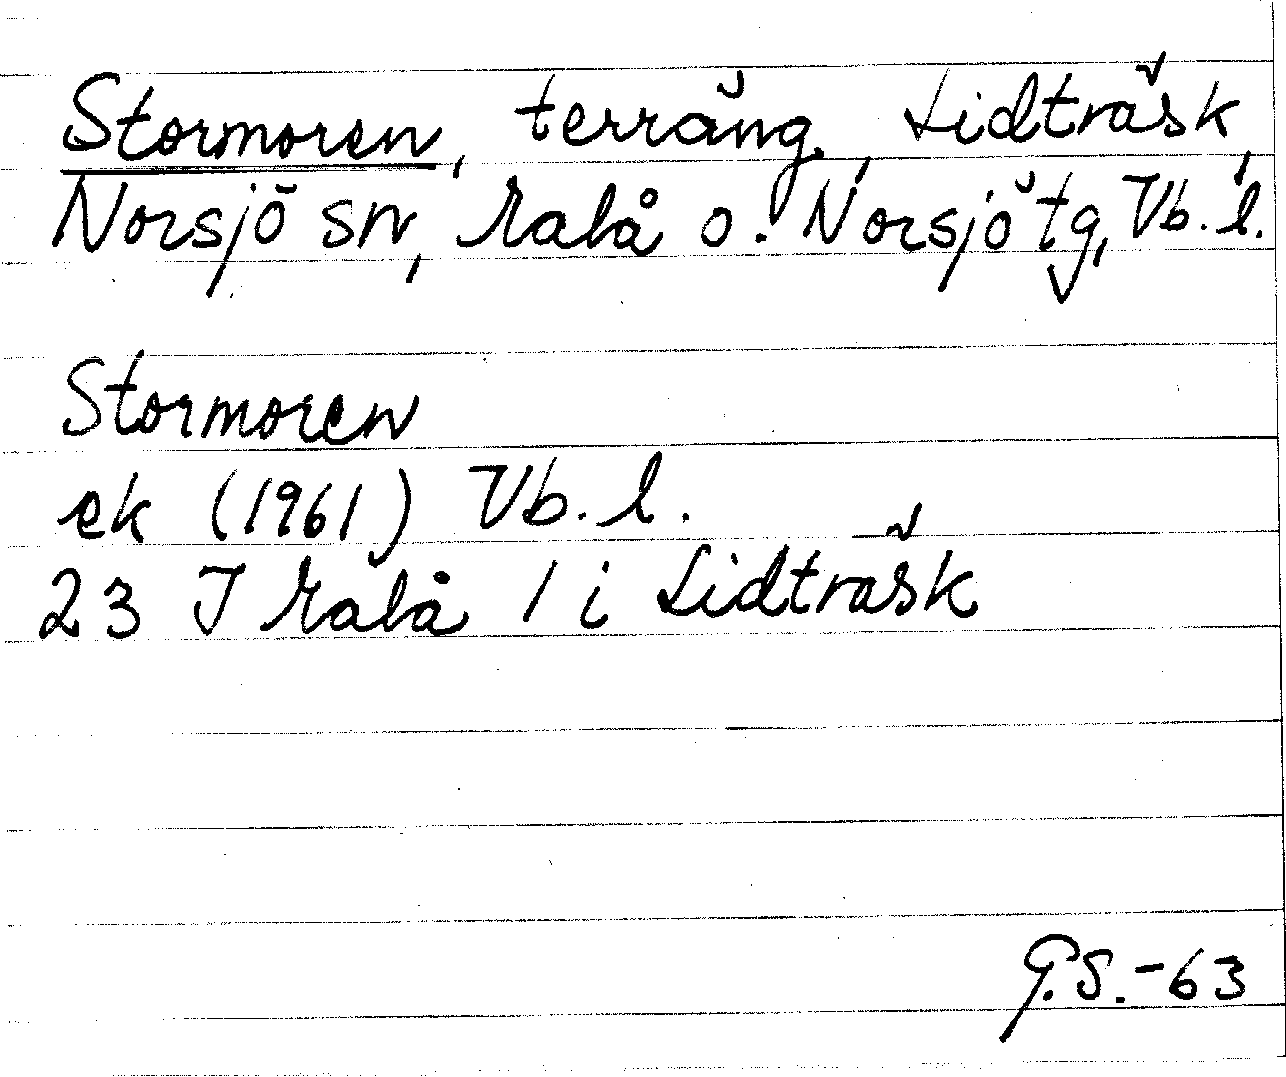 Stormoren, terräng, Lidträsk,
Norsjö sn, Malå o. Norsjö tg, Vb. l.
Stormoren
ek (1961) Vb. l.
23 J Malå 1 i Lidträsk
G.S.-63